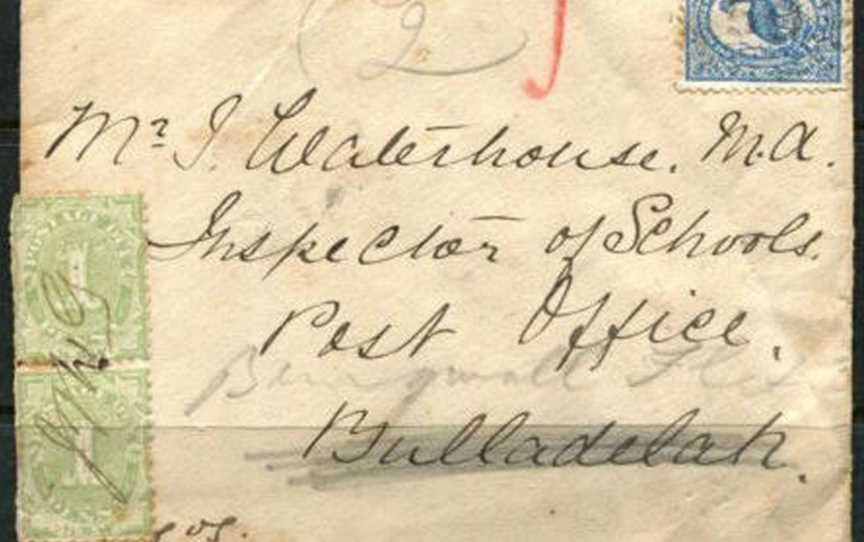 2
Mr J. Waterhouse. M.A.
Inspector of Schools.
Post Office.
Bulladelah.
POSTAGE DUE
1
1